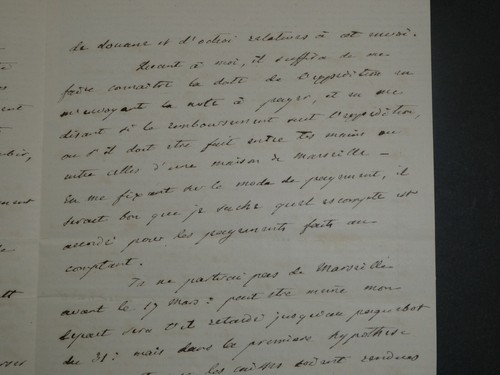 de douane et d'octroi relatives à cet envoi.
Quant à moi, il suffira de me
faire connaître la date de l'expédition en
m'envoyant la note à payer, et en me
disant si le remboursement suit l'expédition,
ou s'il doit être fait entre tes mains ou
entre celles d'une maison de Marseille —
En me fixant sur le mode de payement, il
serait bon que je sache quel escompte est
accordé pour les payements faits au
comptant.
Je ne partirai pas de Marseille
avant le 17 Mars : peut être même mon
départ sera t'il retardé jusqu'au paquebot
du 31 : mais dans la première hypothèse
les caisses soient rendues